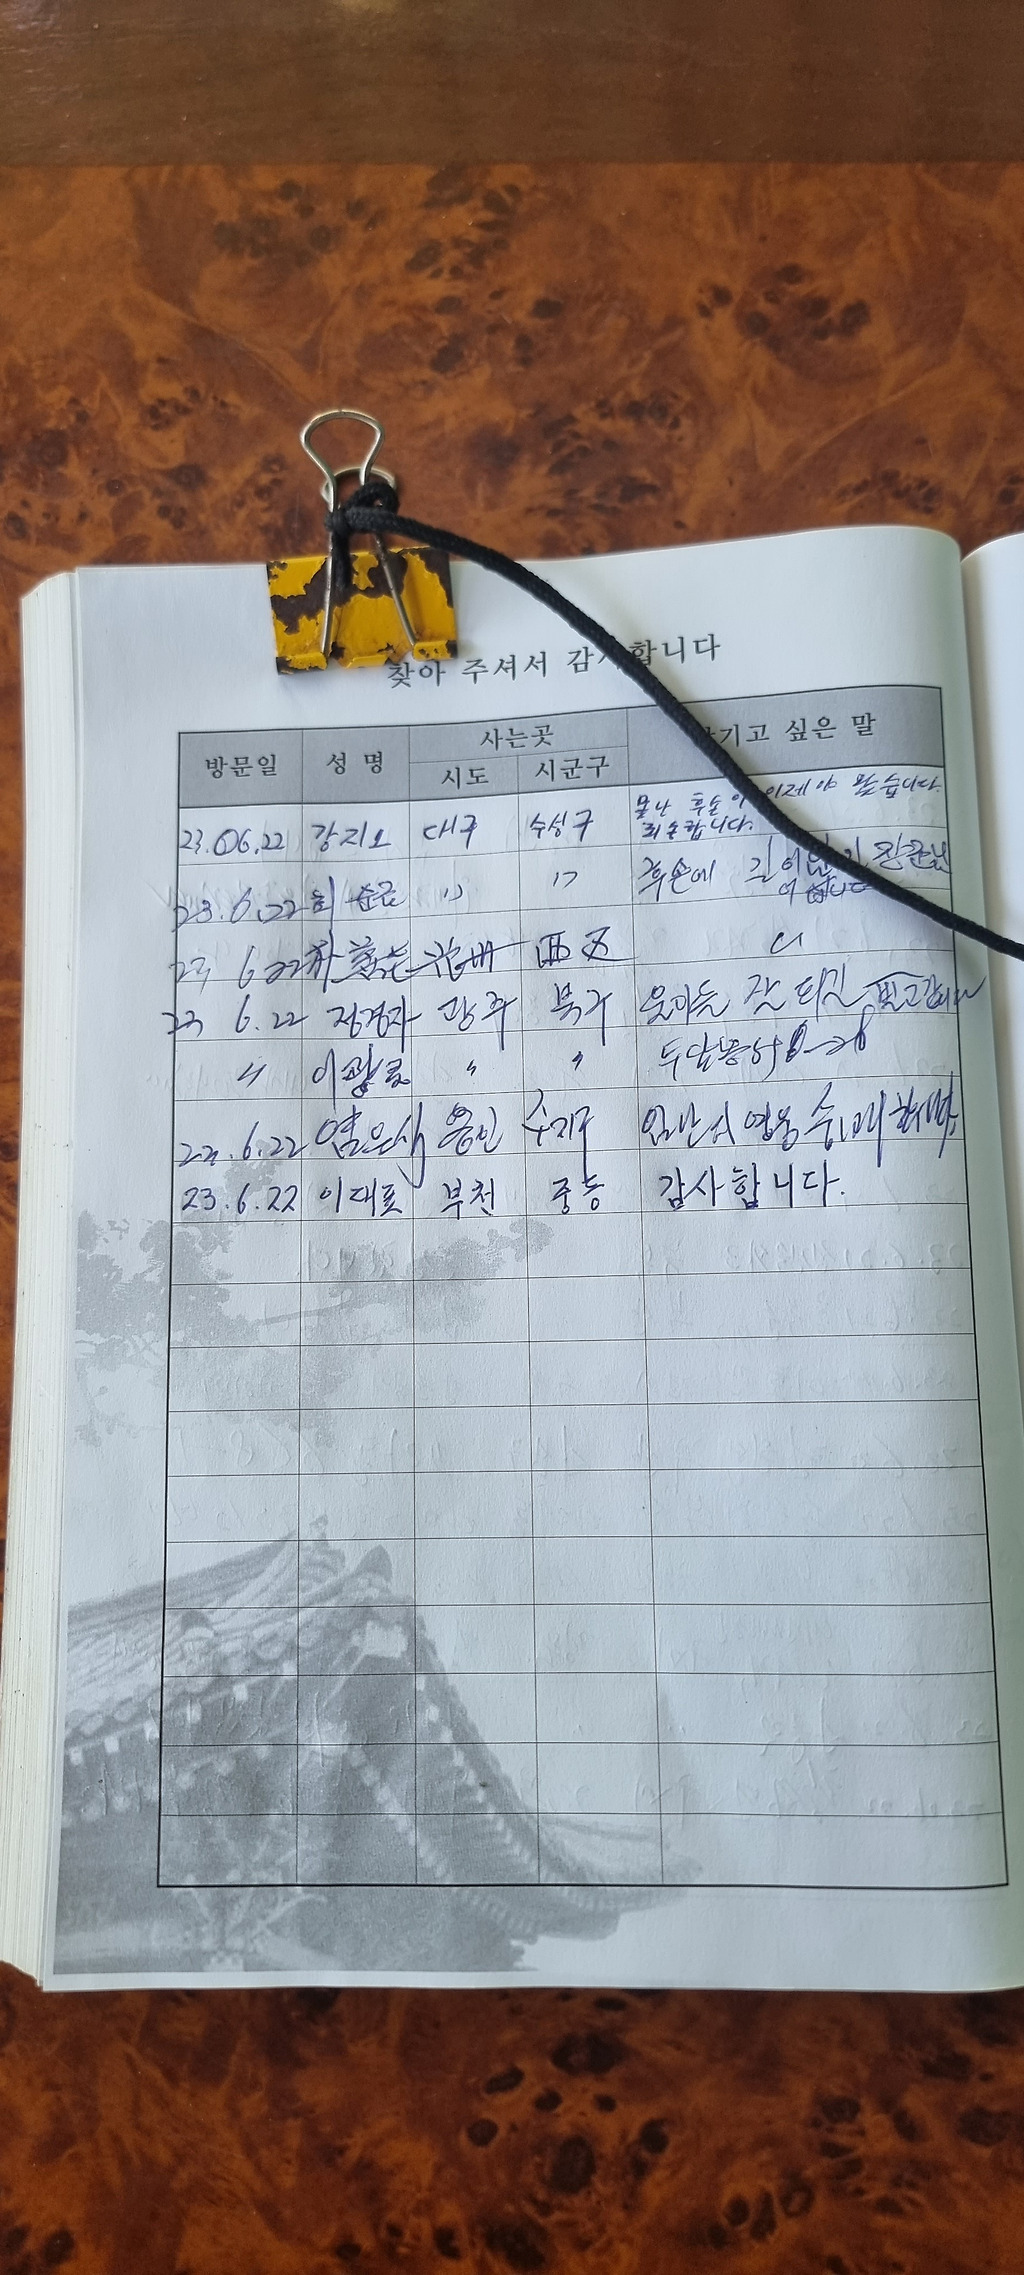 찾아 주셔서 감사합니다
방문일 성 명 사는곳 남기고 싶은 말
시도 시군구
23.06.22 강지오 대구 수성구 못난 후손이 이제야 왔습니다.
죄송합니다.
23.6.22 최 〃 〃 후손에 길이
23 6.22 光州 西区 〃
23 6.22 정경자 광주 북구 잘 되길 빌고갑니다
〃 이광 〃 〃
23.6.22 염은식 용인 수지구 임난의 영웅
23.6.22 이대표 부천 중동 감사합니다.